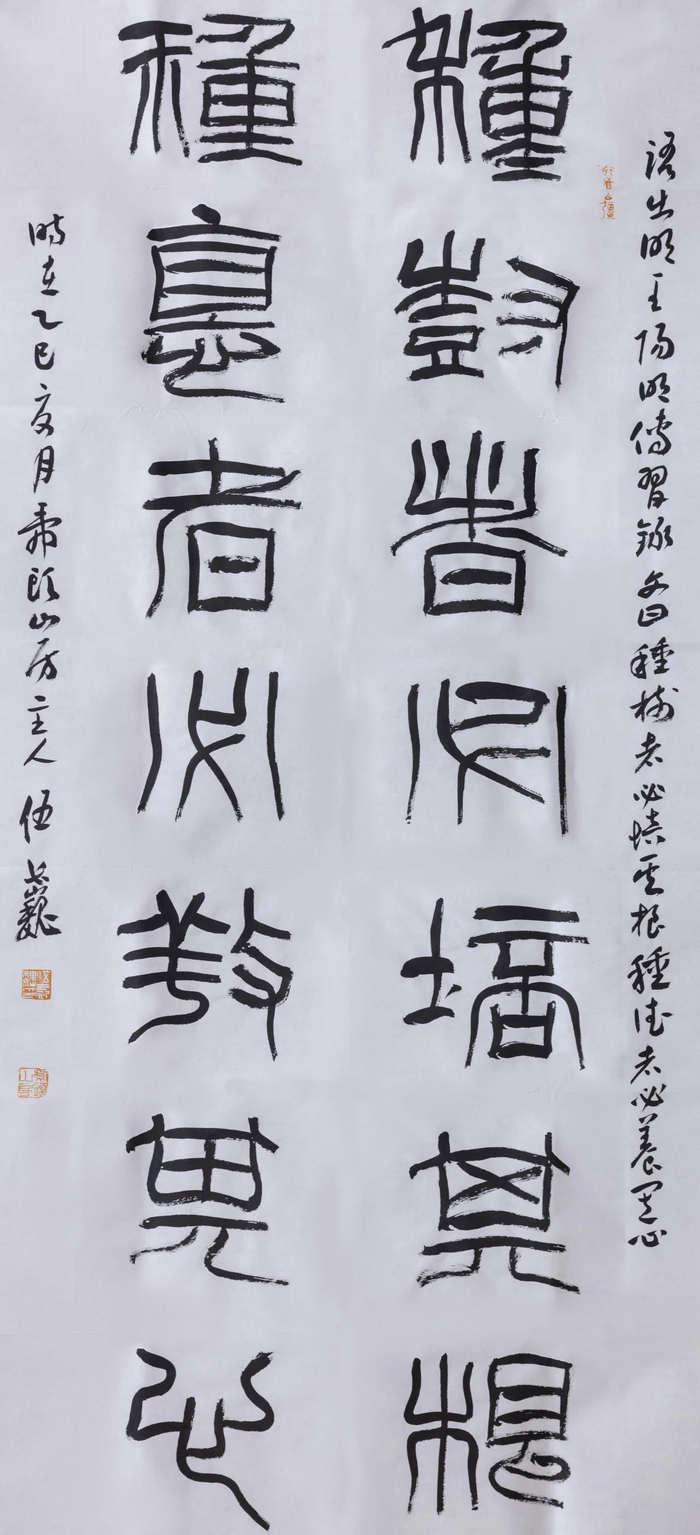 語出明王陽明傳習錄文曰種樹者必培其根種德者必養其心
種尌者必培其根
種悳者必養其心
時在乙巳亥月虎頭山房主人伍